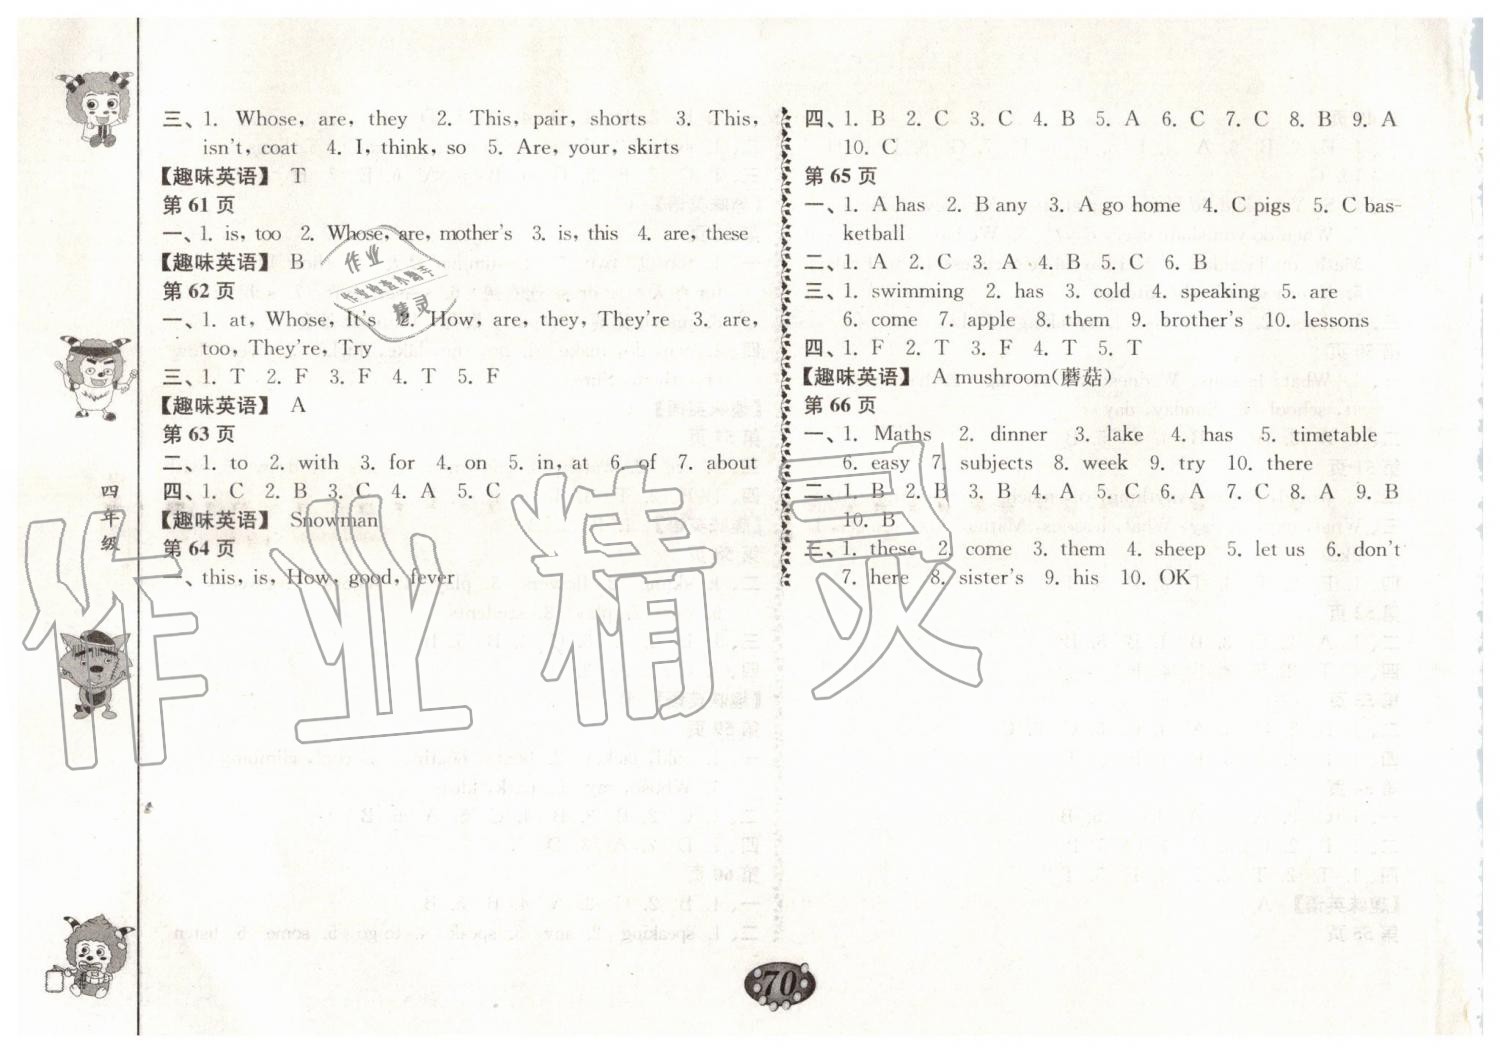 三、1. Whose, are, they 2. This, pair, shorts 3. This,
isn't, coat 4. I, think, so 5. Are, your, skirts
【趣味英语】 T
第 61 页
一、1. is, too 2. Whose, are, mother's 3. is, this 4. are, these
【趣味英语】 B
第 62 页
一、1. at, Whose, It's 2. How, are, they, They're 3. are,
too, They're, Try
三、1. T 2. F 3. F 4. T 5. F
【趣味英语】 A
第 63 页
二、1. to 2. with 3. for 4. on 5. in, at 6. of 7. about
四、1. C 2. B 3. C 4. A 5. C
【趣味英语】 Snowman
第 64 页
一、this, is, How, good, fever
四、1. B 2. C 3. C 4. B 5. A 6. C 7. C 8. B 9. A
10. C
第 65 页
一、1. A has 2. B any 3. A go home 4. C pigs 5. C bas-
ketball
二、1. A 2. C 3. A 4. B 5. C 6. B
三、1. swimming 2. has 3. cold 4. speaking 5. are
6. come 7. apple 8. them 9. brother's 10. lessons
四、1. F 2. T 3. F 4. T 5. T
【趣味英语】 A mushroom(蘑菇)
第 66 页
一、1. Maths 2. dinner 3. lake 4. has 5. timetable
6. easy 7. subjects 8. week 9. try 10. there
二、1. B 2. B 3. B 4. A 5. C 6. A 7. C 8. A 9. B
10. B
三、1. these 2. come 3. them 4. sheep 5. let us 6. don't
7. here 8. sister's 9. his 10. OK
四年级
作业
作业检查小助手
精灵
作业精灵
70